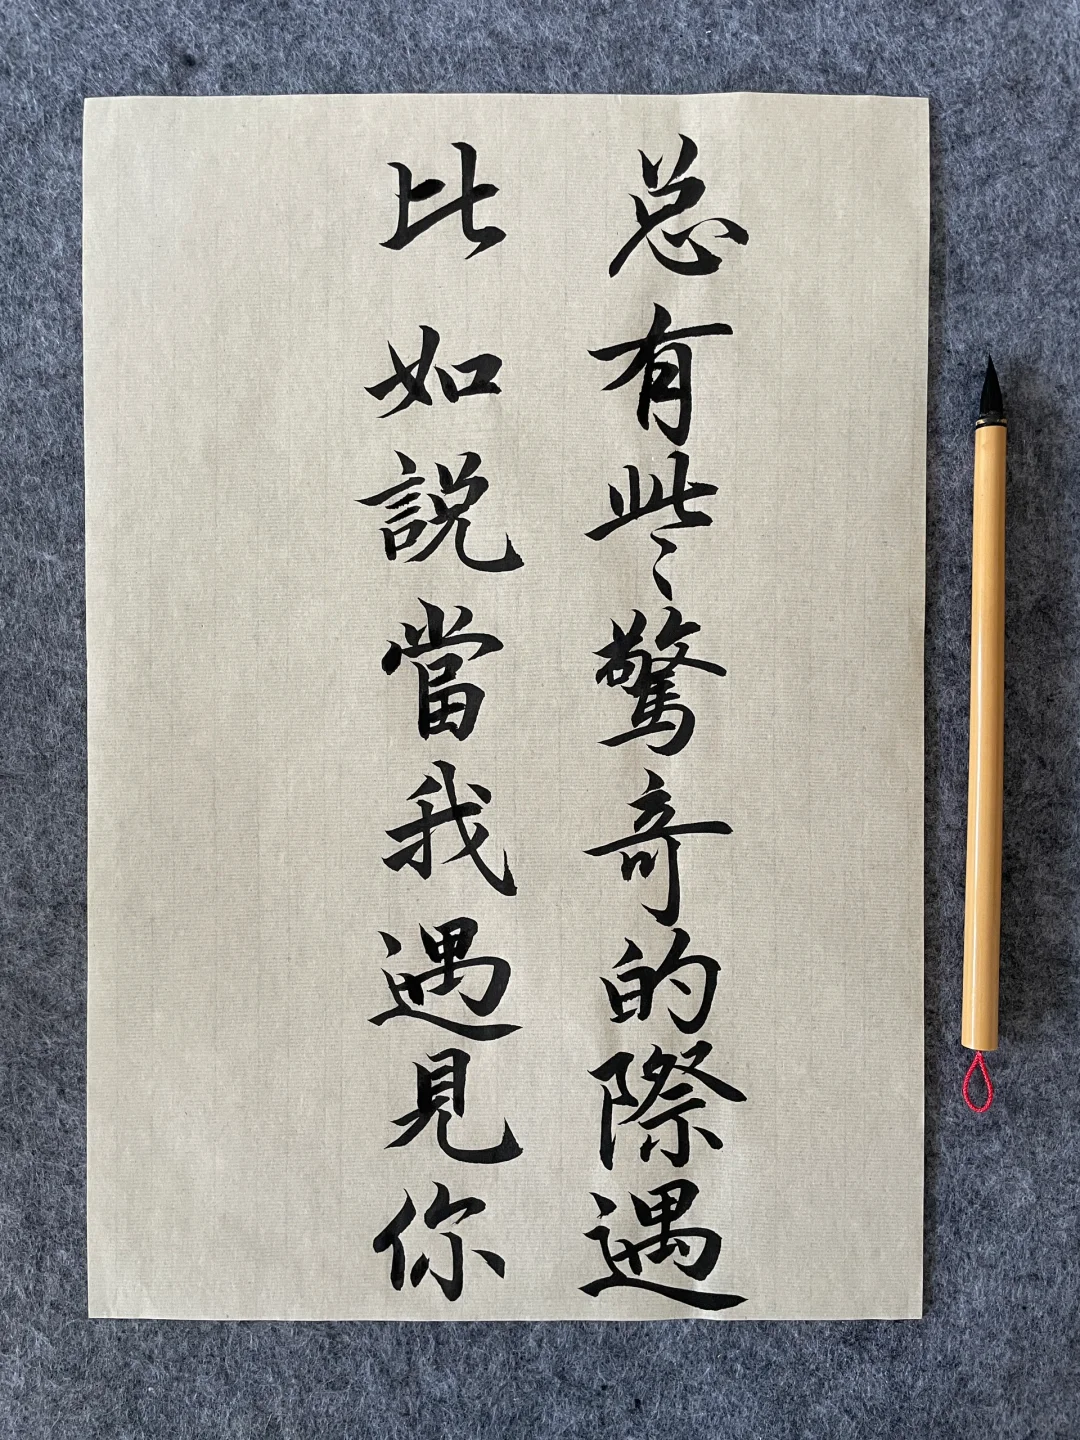 总有些驚奇的際遇
比如説當我遇見你